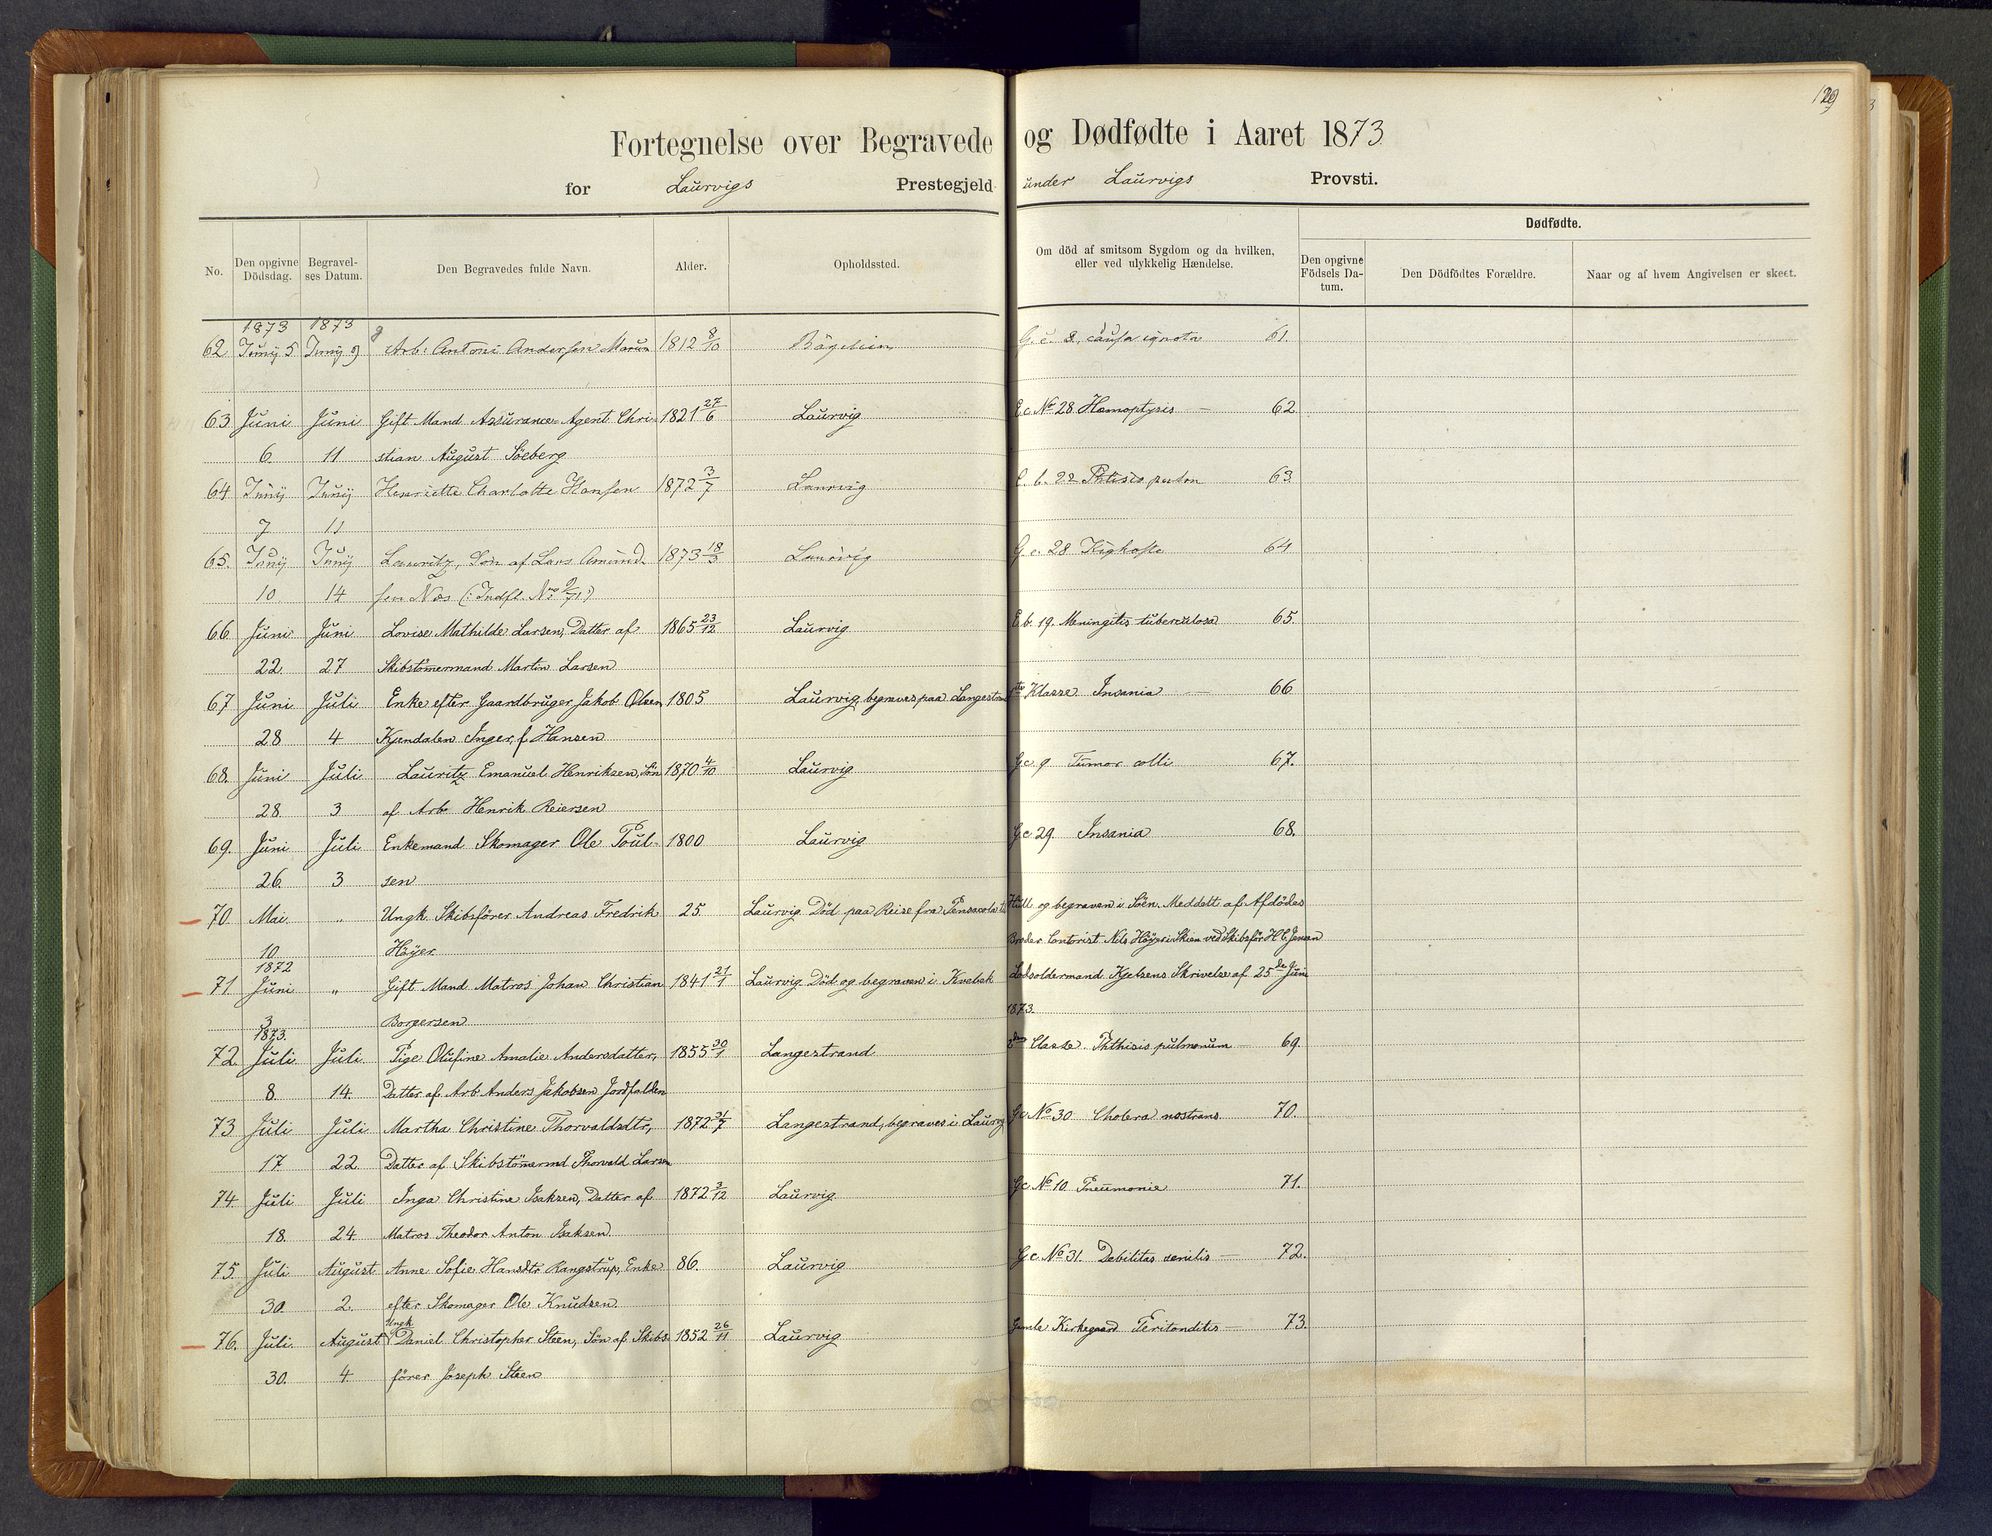 129
Fortegnelse over Begravede og Dødfødte i Aaret 1873.
for Laurvigs Prestegjeld under Laurvigs Provsti.
No. Den opgivne Dödsdag. Begravelses Datum. Den Begravedes fulde Navn. Alder. Opholdssted. Om död af smitsom Sygdom og da hvilken, eller ved ulykkelig Hændelse. Dødfødte. Den opgivne Födsels Datum. Den Dödfödtes Forældre. Naar og af hvem Angivelsen er skeet.
1873 1873
62 Junij 5 Junij 9 Arb: Antoni Andersen 1812 8/10 Bögeliem G. c. 8, causa ignota 61.
63 Juni Juni Gift Mand Assurance-Agent Chri- 1821 27/6 Laurvig E c No 28 Hæmoptysis — 62
6. 11 stian August Söeberg
64 Junij Junij Henriette Charlotte Hansen 1872 3/7 Laurvig b. 22 Phtisis 63.
7 11
65. Junij Junij Lauritz, Sön af Lars Amund- 1873 18/3 Laurvig G. c. 28 Kighoste 64.
10 14 sen Næs (: Indfl. No 2/71:)
66. Juni Juni Lovise Mathilde Larsen, Datter af 1865 23/12 Laurvig E b. 19. Meningitis tuberculosa 65.
22. 27 Skibstömermand Martin Larsen
67 Juni Juli Enke efter Gaardbruger Jakob Olsen 1805 Laurvig, begraves paa Langestrand Klasse Insania — 66
28 4 Kjendalen Inger, f Hansen
68. Juni Juli Lauritz Emanuel Henriksen, Sön 1870 4/10 Laurvig G c 9 Tumor colli 67.
28. 3 af Arb. Henrik Reiersen
69. Juni Juli Enkemand Skomager Ole Poul- 1800 Laurvig G c 29. Insania 68.
26. 3 sen
70. Mai „ Ungk. Skibsfører Andreas Fredrik 25 Laurvig Död paa Reise fra Pensacola til Hull og begraven i Söen. Meddelt af Afdödes
10. Höyer. Broder Contorist Nils Höyer i Skien ved Skibsför H C Jensen
1872
71. Juni „ Gift Mand Matros Johan Christian 1841 21/1 Laurvig Död og begraven i Kvebek Lodsoldermand Kjelsens Skrivelse af 25de Juni
3 Borgersen 1873.
1873.
72. Juli Juli Pige Olufine Amalie Andersdatter, 1855 30/1 Langestrand 2den Classe. Phthisis pulmonum — 69.
8 14. Datter af Arb Anders Jakobsen Jordfalden
73 Juli Juli Martha Christine Thorvaldsdtr, 1872 31/7 Langestrand, begraves i Laurvig G c No 30 Cholera nostrans 70.
17. 22 Datter af Skibstömermd Thorvald Larsen
74. Juli Juli Inga Christine Isaksen, Datter af 1872 3/12 Laurvig G c No 10. Pneumonie 71.
18. 24. Matros Theodor Anton Isaksen
75. Juli August Anne Sofie Hansdtr Rangstrup, Enke 86. Laurvig G c No 31. Debilitas senilis — 72.
30. 2. efter Skomager Ole Knudsen.
Ungk
76. Juli. August Daniel Christopher Steen, Sön af Skibs- 1852 26/11 Laurvig Gamle Kirkegaard Peritonditis — 73.
30. 4. förer Joseph Steen